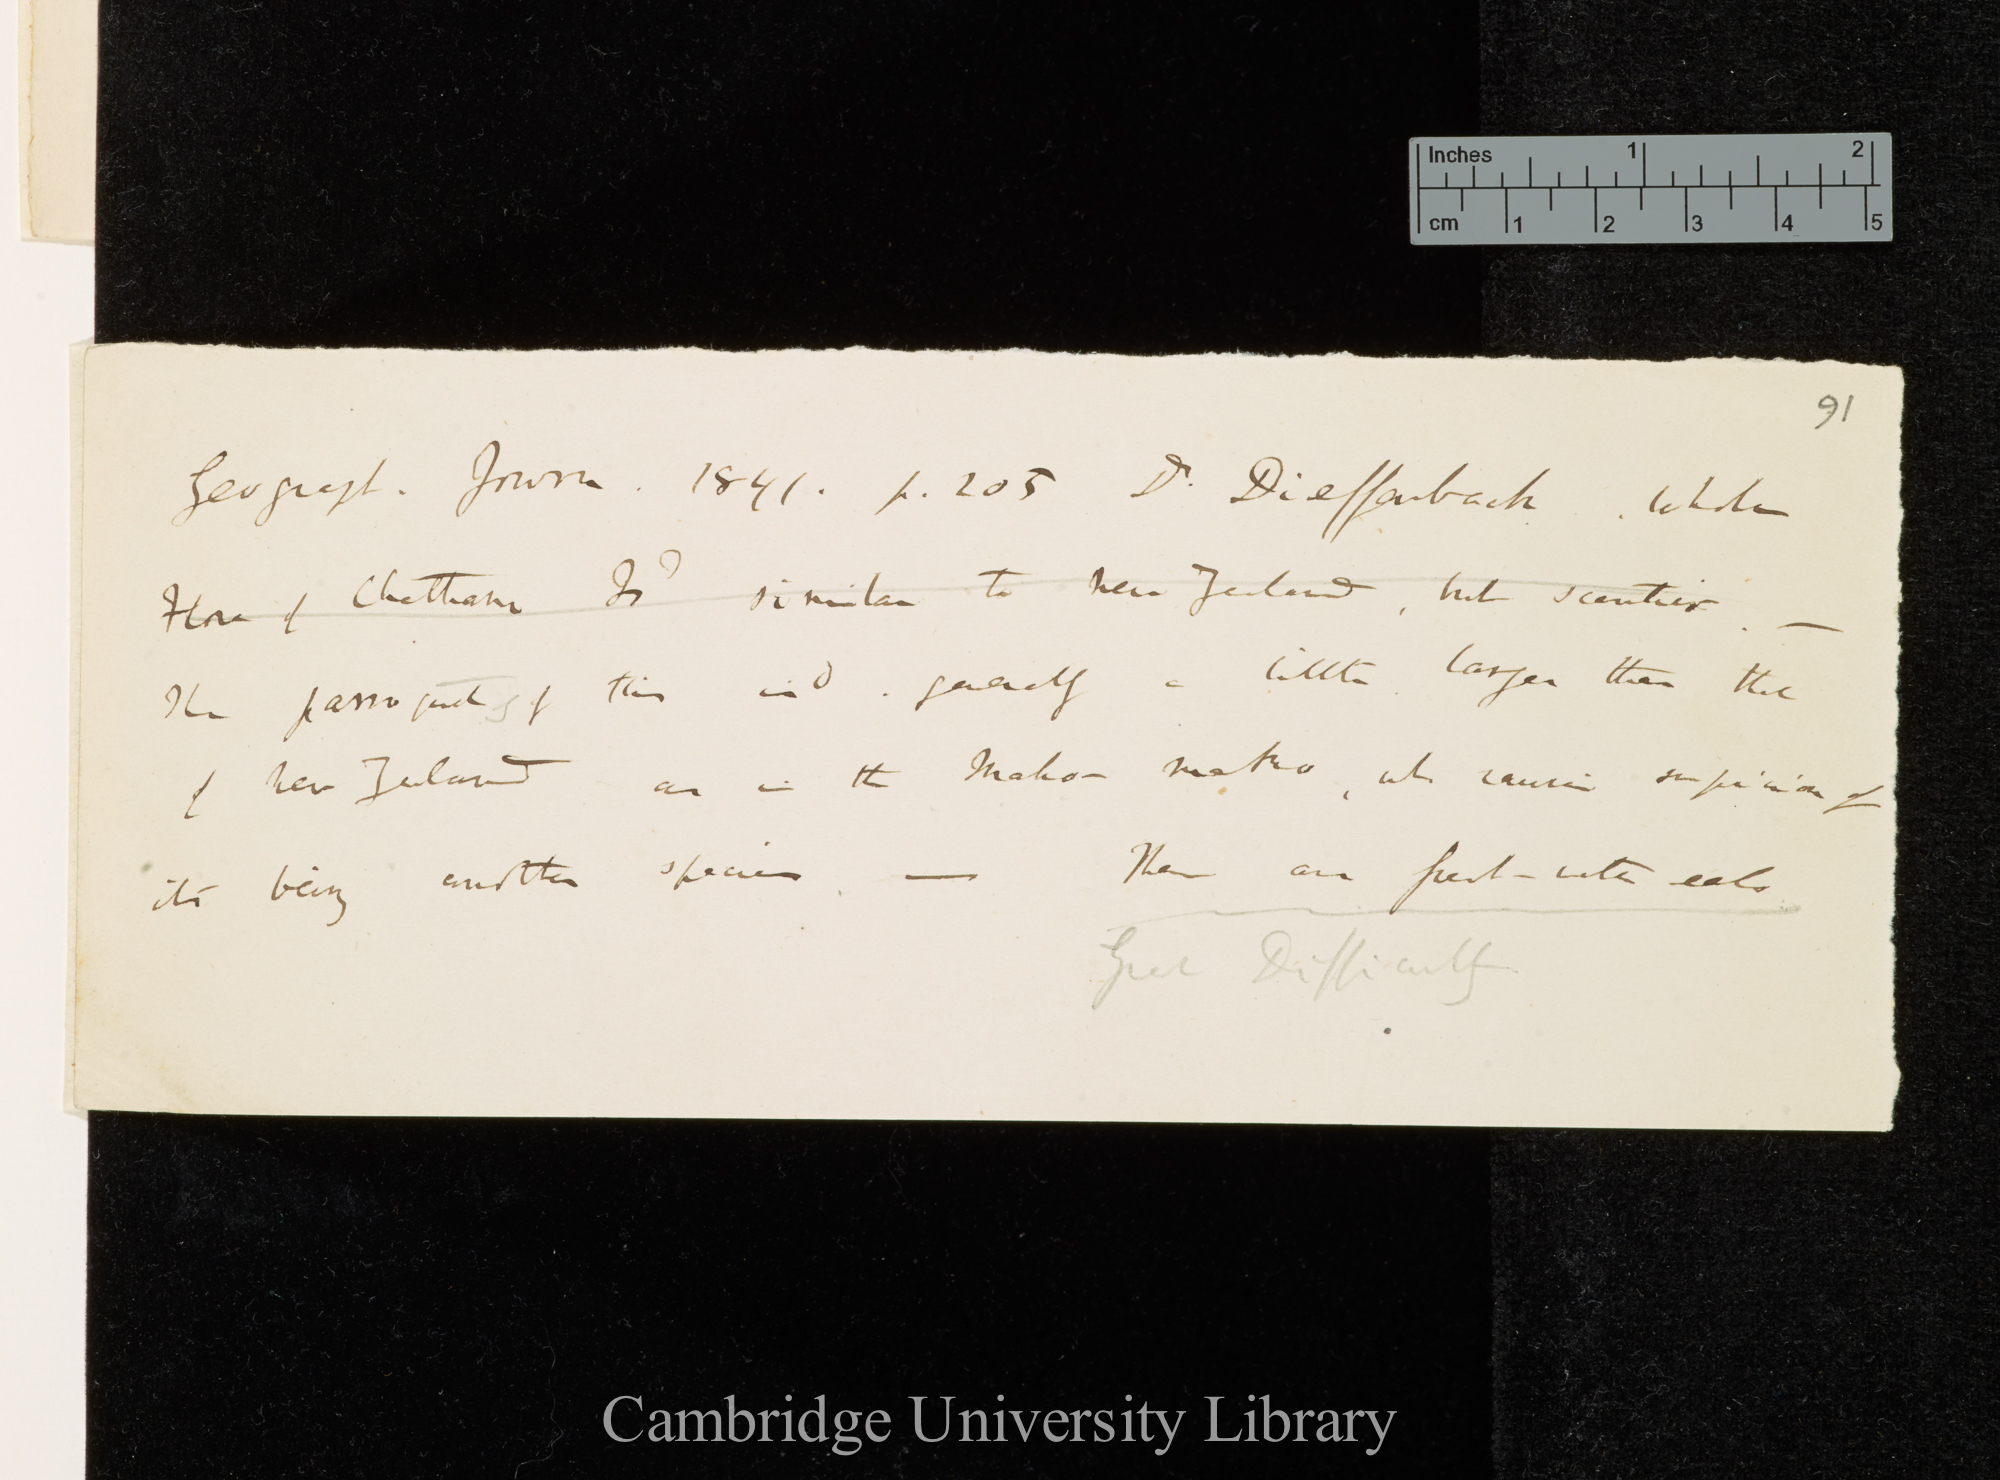 Inches 1 2
cm 1 2 3 4 5
91
Geograph. Journ. 1841. p. 205 Dr. Dieffenbach. Whole
Flora of Chatham Isd similar to New Zealand, but scantier. —
The parroquets of this isd. generally a little larger than that
of New Zealand as is the, wh causes suspicion of
its being another species. — There are fresh-water eels
Great Difficulty
Cambridge University Library